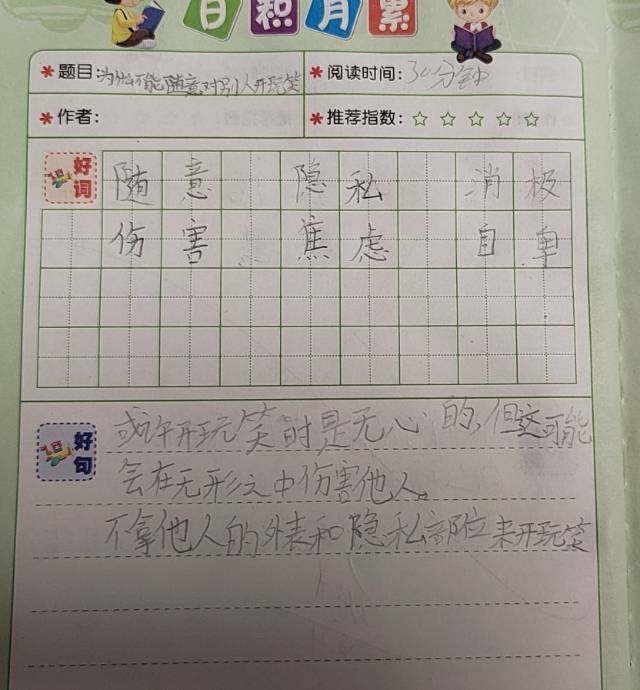 日积月累
*题目:为什么不能随意对别人开玩笑
*阅读时间:30分钟
*作者:
*推荐指数:☆☆☆☆☆
好词
随意 隐私 消极
伤害 焦虑 自卑
好句
或许开玩笑时是无心的,但这可能
会在无形之中伤害他人。
不拿他人的外表和隐私部位来开玩笑